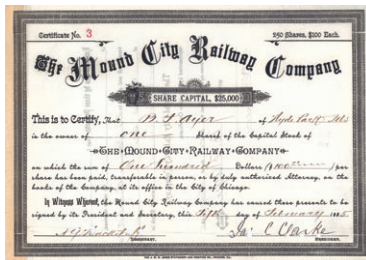 Certificate No. 3 250 Shares, $100 Each.
The Mound City Railway Company
SHARE CAPITAL, $25,000
This is to Certify, That B. F. Ayer of Hyde Park Ills
is the owner of one Share of the Capital Stock of
THE MOUND CITY RAILWAY COMPANY
on which the sum of One Hundred Dollars per
share has been paid, transferable in person, or by duly authorized Attorney, on
the books of the Company, at its office in the City of Chicago.
In Witness Whereof, the Mound City Railway Company has caused these presents to be
signed by its President and Secretary, this Fifth day of February 1885
Jas. C. Clarke
SECRETARY. PRESIDENT.